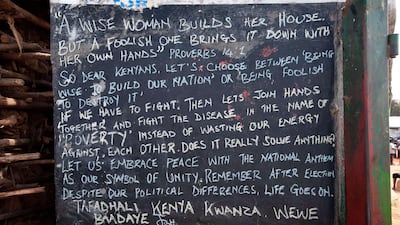 "A WISE WOMAN BUILDS HER HOUSE.
BUT A FOOLISH ONE BRINGS IT DOWN WITH
HER OWN HANDS" PROVERBS 14:1
SO DEAR KENYANS, LET'S CHOOSE BETWEEN 'BEING
WISE TO BUILD OUR NATION' OR 'BEING, FOOLISH
TO DESTROY IT'
IF WE HAVE TO FIGHT, THEN LETS JOIN HANDS
TOGETHER AND FIGHT THE DISEASE IN THE NAME OF
"POVERTY" INSTEAD OF WASTING OUR ENERGY
AGAINST, EACH OTHER. DOES IT REALLY SOLVE ANYTHING?
LET US EMBRACE PEACE WITH THE NATIONAL ANTHEM
AS OUR SYMBOL OF UNITY. REMEMBER AFTER ELECTION
DESPITE OUR POLITICAL DIFFERENCES, LIFE GOES ON.
TAFADHALI KENYA KWANZA, WEWE
BAADAYE